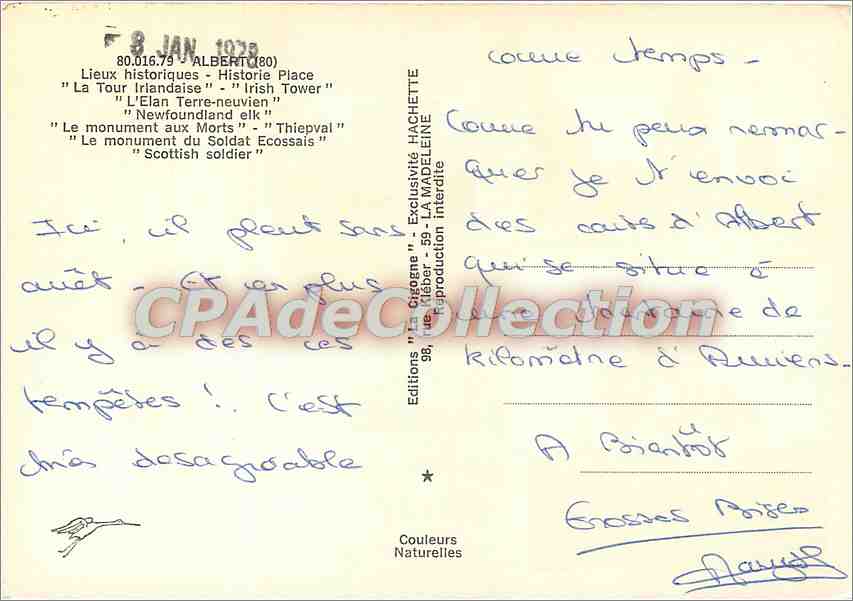 8 JAN 1978
80.016.79 - ALBERT (80)
Lieux historiques - Historie Place
"La Tour Irlandaise" - "Irish Tower"
"L'Elan Terre-neuvien"
"Newfoundland elk"
"Le monument aux Morts" - "Thiepval"
"Le monument du Soldat Ecossais"
"Scottish soldier"
Ici, il pleut sans
arrêt - Et en plus
il y a des ces
tempêtes !. C'est
très desagréable
Editions "La Cigogne" - Exclusivité HACHETTE
98, rue Kléber - 59 - LA MADELEINE
Reproduction interdite
Couleurs
Naturelles
comme temps -
Comme tu peux remar-
quer je t'envoi
des cartes d'Albert
qui se situe à
une trentaine de
kilomètre d'Amiens.
A Bientôt
Grosses Bises
CPAdeCollection